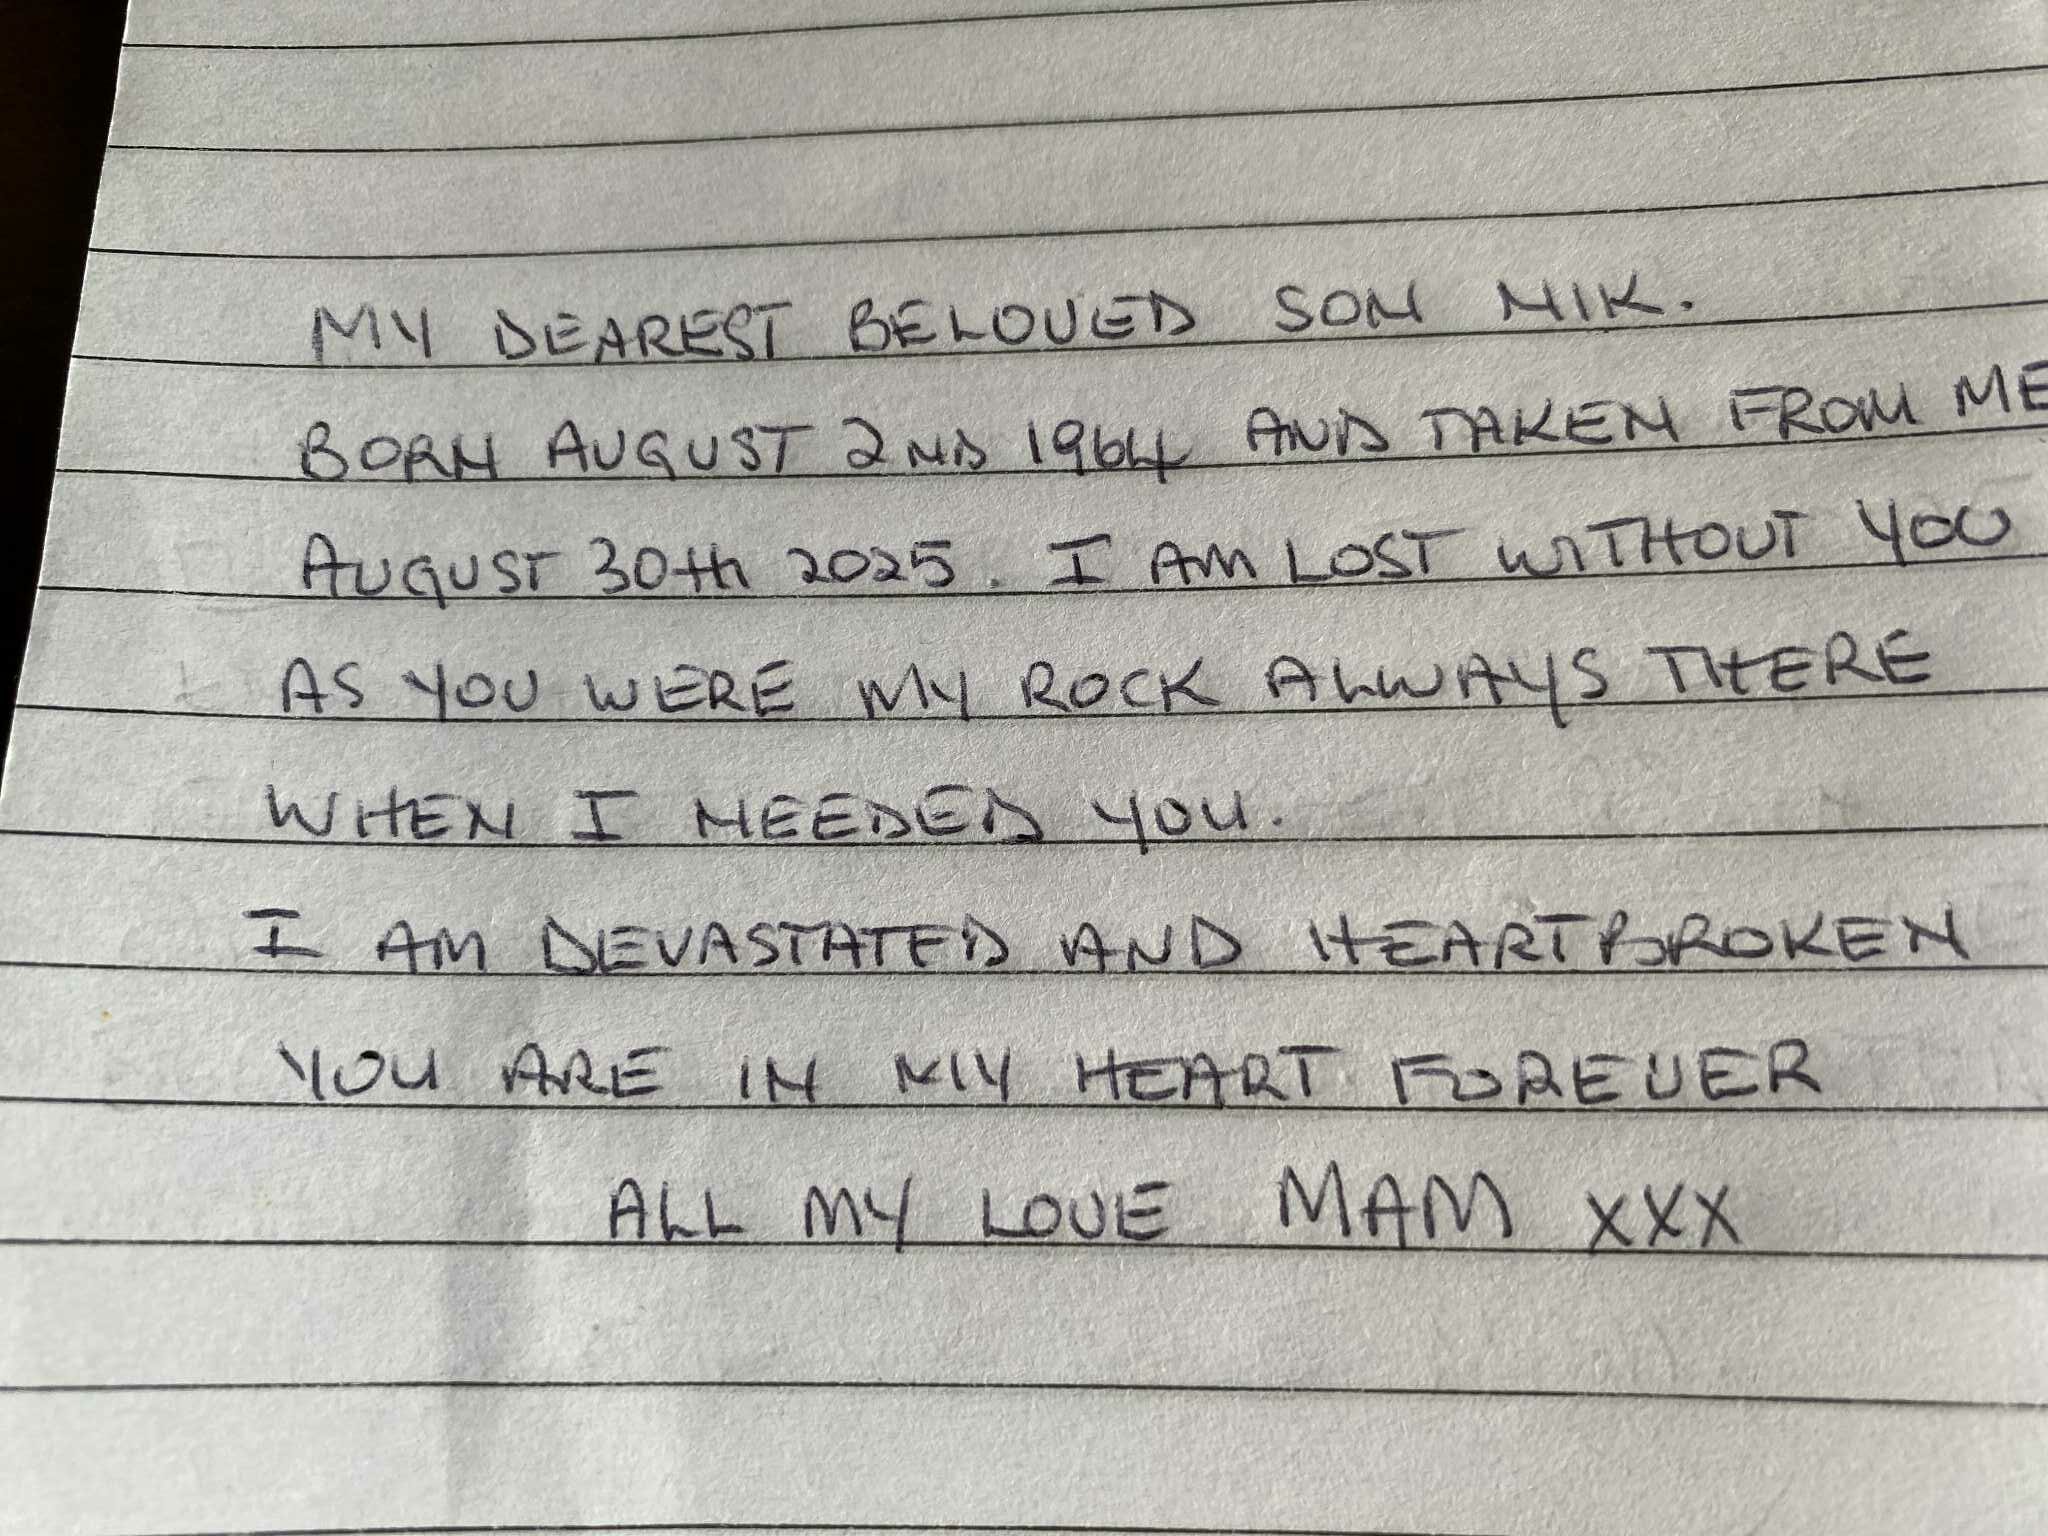 MY DEAREST BELOVED SON NIK.
BORN AUGUST 2ND 1964 AND TAKEN FROM ME
AUGUST 30th 2025. I AM LOST WITHOUT YOU
AS YOU WERE MY ROCK ALWAYS THERE
WHEN I NEEDED YOU.
I AM DEVASTATED AND HEARTBROKEN
YOU ARE IN MY HEART FOREVER
ALL MY LOVE MAM XXX